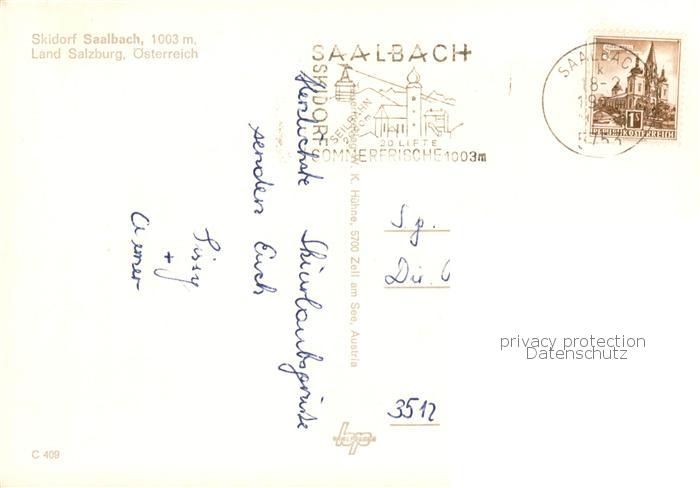 Skidorf Saalbach, 1003 m,
Land Salzburg, Österreich
SAALBACH
SKIDORF
SEILBAHN
20 LIFTE
SOMMERFRISCHE 1003m
SAALBAC
18-2
19
5753
1S
REPUBLIK ÖSTERREICH
Herzlichste Skiurlaubsgrüße
senden Euch
Sissy
+
W. K. Hühne, 5700 Zell am See, Austria
Sg.
Dir.
3512
privacy protection
Datenschutz
C 409